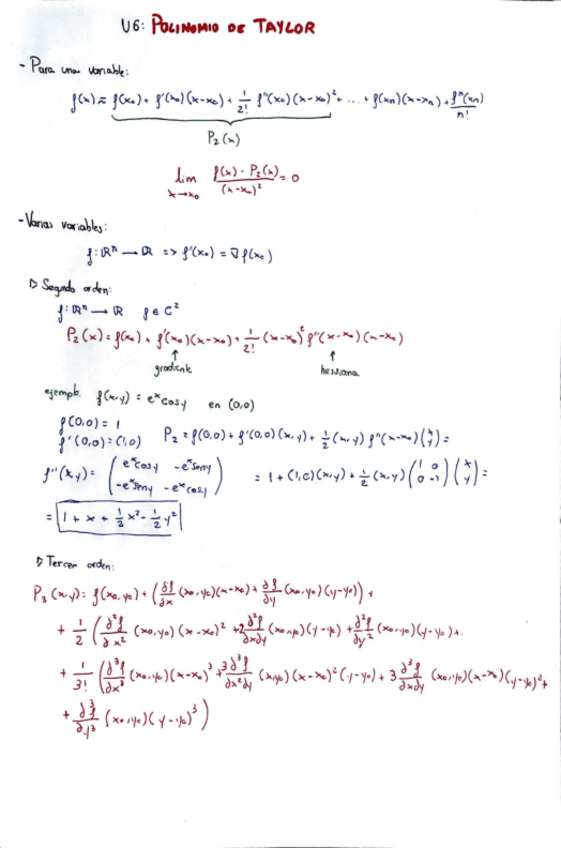 U6: POLINOMIO DE TAYLOR
- Para una variable:
f(x) ≈ f(x₀) + f'(x₀)(x-x₀) + 1/2! f''(x₀)(x-x₀)² + ... + f(xn)(x-xn) + fⁿ(xn)/n!
P₂(x)
lim x→x₀ (f(x) - P₂(x))/(x-x₀)² = 0
- Varias variables:
f: ℝⁿ → ℝ => f'(x₀) = ∇f(x₀)
▷ Segundo orden:
f: ℝⁿ → ℝ f ∈ C²
P₂(x) = f(x₀) + f'(x₀)(x-x₀) + 1/2! (x-x₀)ᵗ f''(x-x₀)(x-x₀)
↑ ↑
gradiente hessiana
ejemplo. f(x,y) = eˣcosy en (0,0)
f(0,0) = 1
f'(0,0) = (1,0) P₂ = f(0,0) + f'(0,0)(x,y) + 1/2 (x,y) f''(x-x₀) (x y) =
f''(x,y) = (eˣcosy -eˣseny -eˣseny -eˣcosy) = 1 + (1,0)(x,y) + 1/2 (x,y) (1 0 0 -1) (x y) =
= 1 + x + 1/2 x² - 1/2 y²
▷ Tercer orden:
P₃(x,y) = f(x₀,y₀) + (∂f/∂x (x₀,y₀)(x-x₀) + ∂f/∂y (x₀,y₀)(y-y₀)) +
+ 1/2 (∂²f/∂x² (x₀,y₀)(x-x₀)² + 2 ∂²f/∂x∂y (x₀,y₀)(y-y₀) + ∂²f/∂y² (x₀,y₀)(y-y₀) +
+ 1/3! (∂³f/∂x³ (x₀,y₀)(x-x₀)³ + 3∂³f/∂x²∂y (x,y₀)(x-x₀)²(y-y₀) + 3 ∂³f/∂x∂y (x₀,y₀)(x-x₀)(y-y₀)² +
+ ∂³f/∂y³ (x₀,y₀)(y-y₀)³)